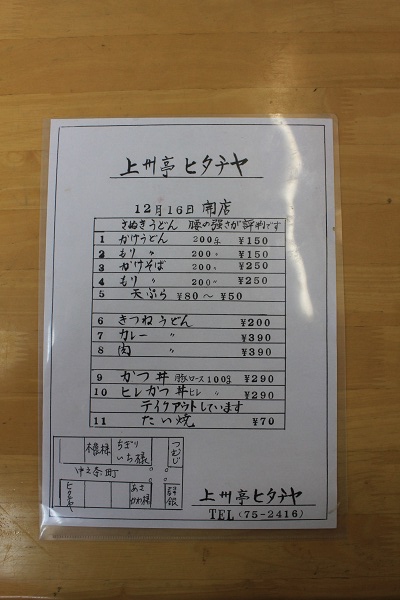 上州亭 ヒタチヤ
12月16日 開店
さぬきうどん 腰の強さが評判です
1 かけうどん 200g ¥150
2 もり 〃 〃 ¥150
3 かけそば 200g ¥250
4 もり 〃 〃 ¥250
5 天ぷら ¥80～¥50
6 きつねうどん ¥200
7 カレー 〃 ¥390
8 肉 〃 ¥390
9 かつ丼 豚ロース100g ¥290
10 ヒレかつ丼 ヒレ 〃 ¥290
テイクアウトしています
11 たい焼 ¥70
ちぎり
いち様
つむじ
中之条町
ヒタチヤ
群銀
上州亭ヒタチヤ
TEL (75-2416)